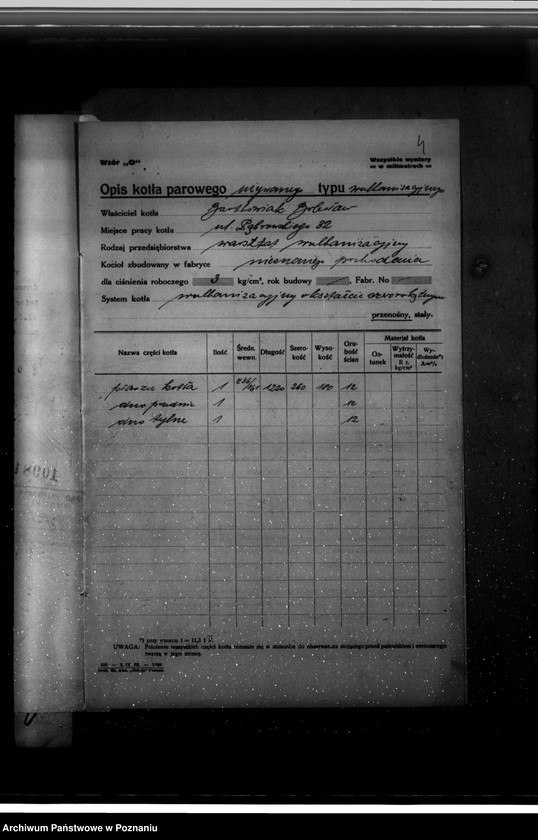 4
Wzór „G“
Wszystkie wymiary
w milimetrach
Opis kotła parowego używanego typu wulkanizacyjnego
Właściciel kotła Bartkowiak Bolesław
Miejsce pracy kotła ul. Dąbrowskiego 32
Rodzaj przedsiębiorstwa warsztat wulkanizacyjny
Kocioł zbudowany w fabryce nieznanego pochodzenia
dla ciśnienia roboczego 3 kg/cm², rok budowy — , Fabr. No —
System kotła wulkanizacyjny o kształcie czworokątnym
przenośny, stały.
Nazwa części kotła Ilość Średn. wewn. Długość Szerokość Wysokość Grubość ścian Materjał kotła
Gatunek Wytrzymałość R z. kg/cm² Wydłużenie*) A w %
płaszcz kotła 1 1220 260 180 12
dno przednie 1 12
dno tylne 1 12
*) przy wzorcu l = 11,3 √
UWAGA: Położenie wszystkich części kotła rozumie się w stosunku do obserwatora stojącego przed paleniskiem i zwróconego
twarzą w jego stronę.
10981
Archiwum Państwowe w Poznaniu